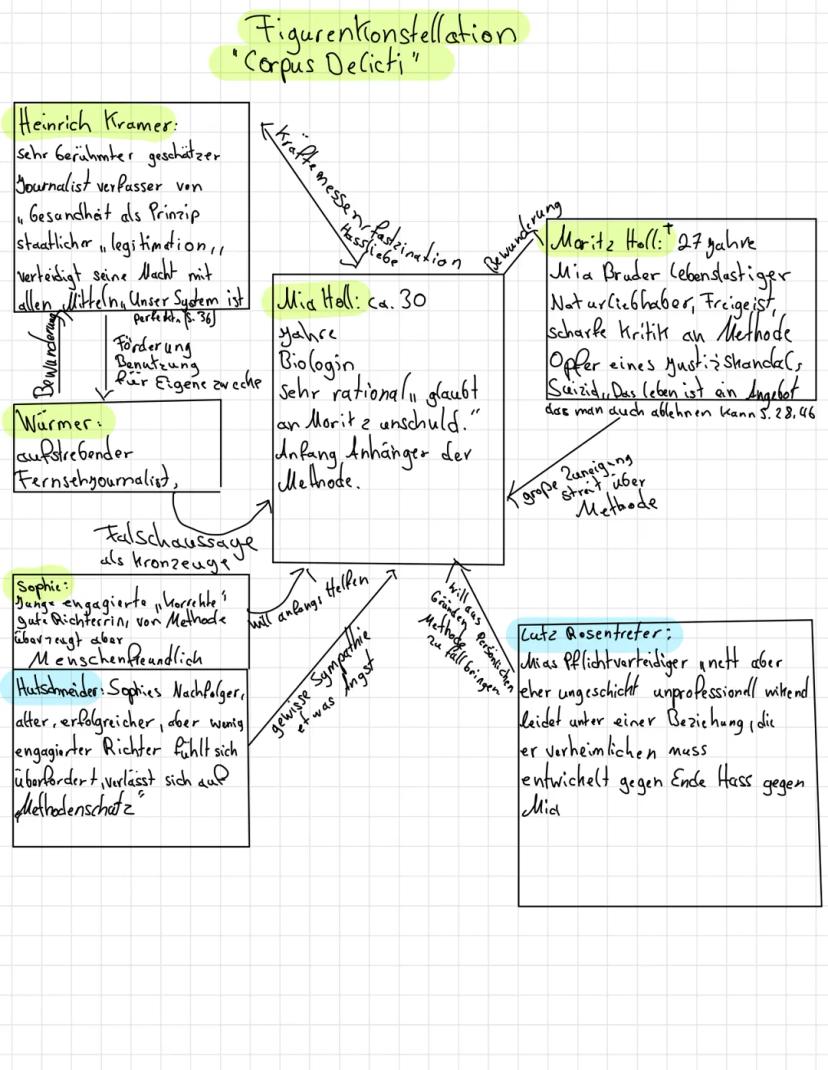 Figurenkonstellation
"Corpus Delicti"
Heinrich Kramer:
sehr berühmter geschätzer
Journalist verfasser von
„Gesundheit als Prinzip
staatlicher „legitimation„
verteidigt seine Macht mit
allen Mitteln„Unser System ist
perfekt„ (S. 36)
Kräftemessen/faszination
Hassliebe
Bewunderung
Moritz Holl:† 27 Jahre
Mia Bruder lebenslastiger
Naturliebhaber, Freigeist,
scharfe Kritik an Methode
Opfer eines Justizskandals,
Suizid„Das Leben ist ein Angebot
das man auch ablehnen kann S. 28,46
Mia Holl: ca. 30
Jahre
Biologin
sehr rational„ glaubt
an Moritz unschuld."
Anfang Anhänger der
Methode.
Bewunderung
Förderung
Benutzung
für Eigene zwecke
Würmer:
aufstrebender
Fernsehjournalist,
Falschaussage
als Kronzeuge
große Zuneigung
streit über
Methode
Sophie:
Junge engagierte „korrekte"
gute Richterrin, von Methode
überzeugt aber
Menschenfreundlich
will anfangs Helfen
Hutschneider: Sophies Nachfolger,
alter, erfolgreicher, aber wenig
engagierter Richter fühlt sich
überfordert, verlässt sich auf
„Methodenschatz"
gewisse Sympathie
etwas Angst
will aus
Gründen Persönlichen
Methode
zu fall bringen
Lutz Rosentreter:
Mias Pflichtverteidiger, nett aber
eher ungeschickt unprofessionell wikend
leidet unter einer Beziehung, die
er verheimlichen muss
entwickelt gegen Ende Hass gegen
Mia